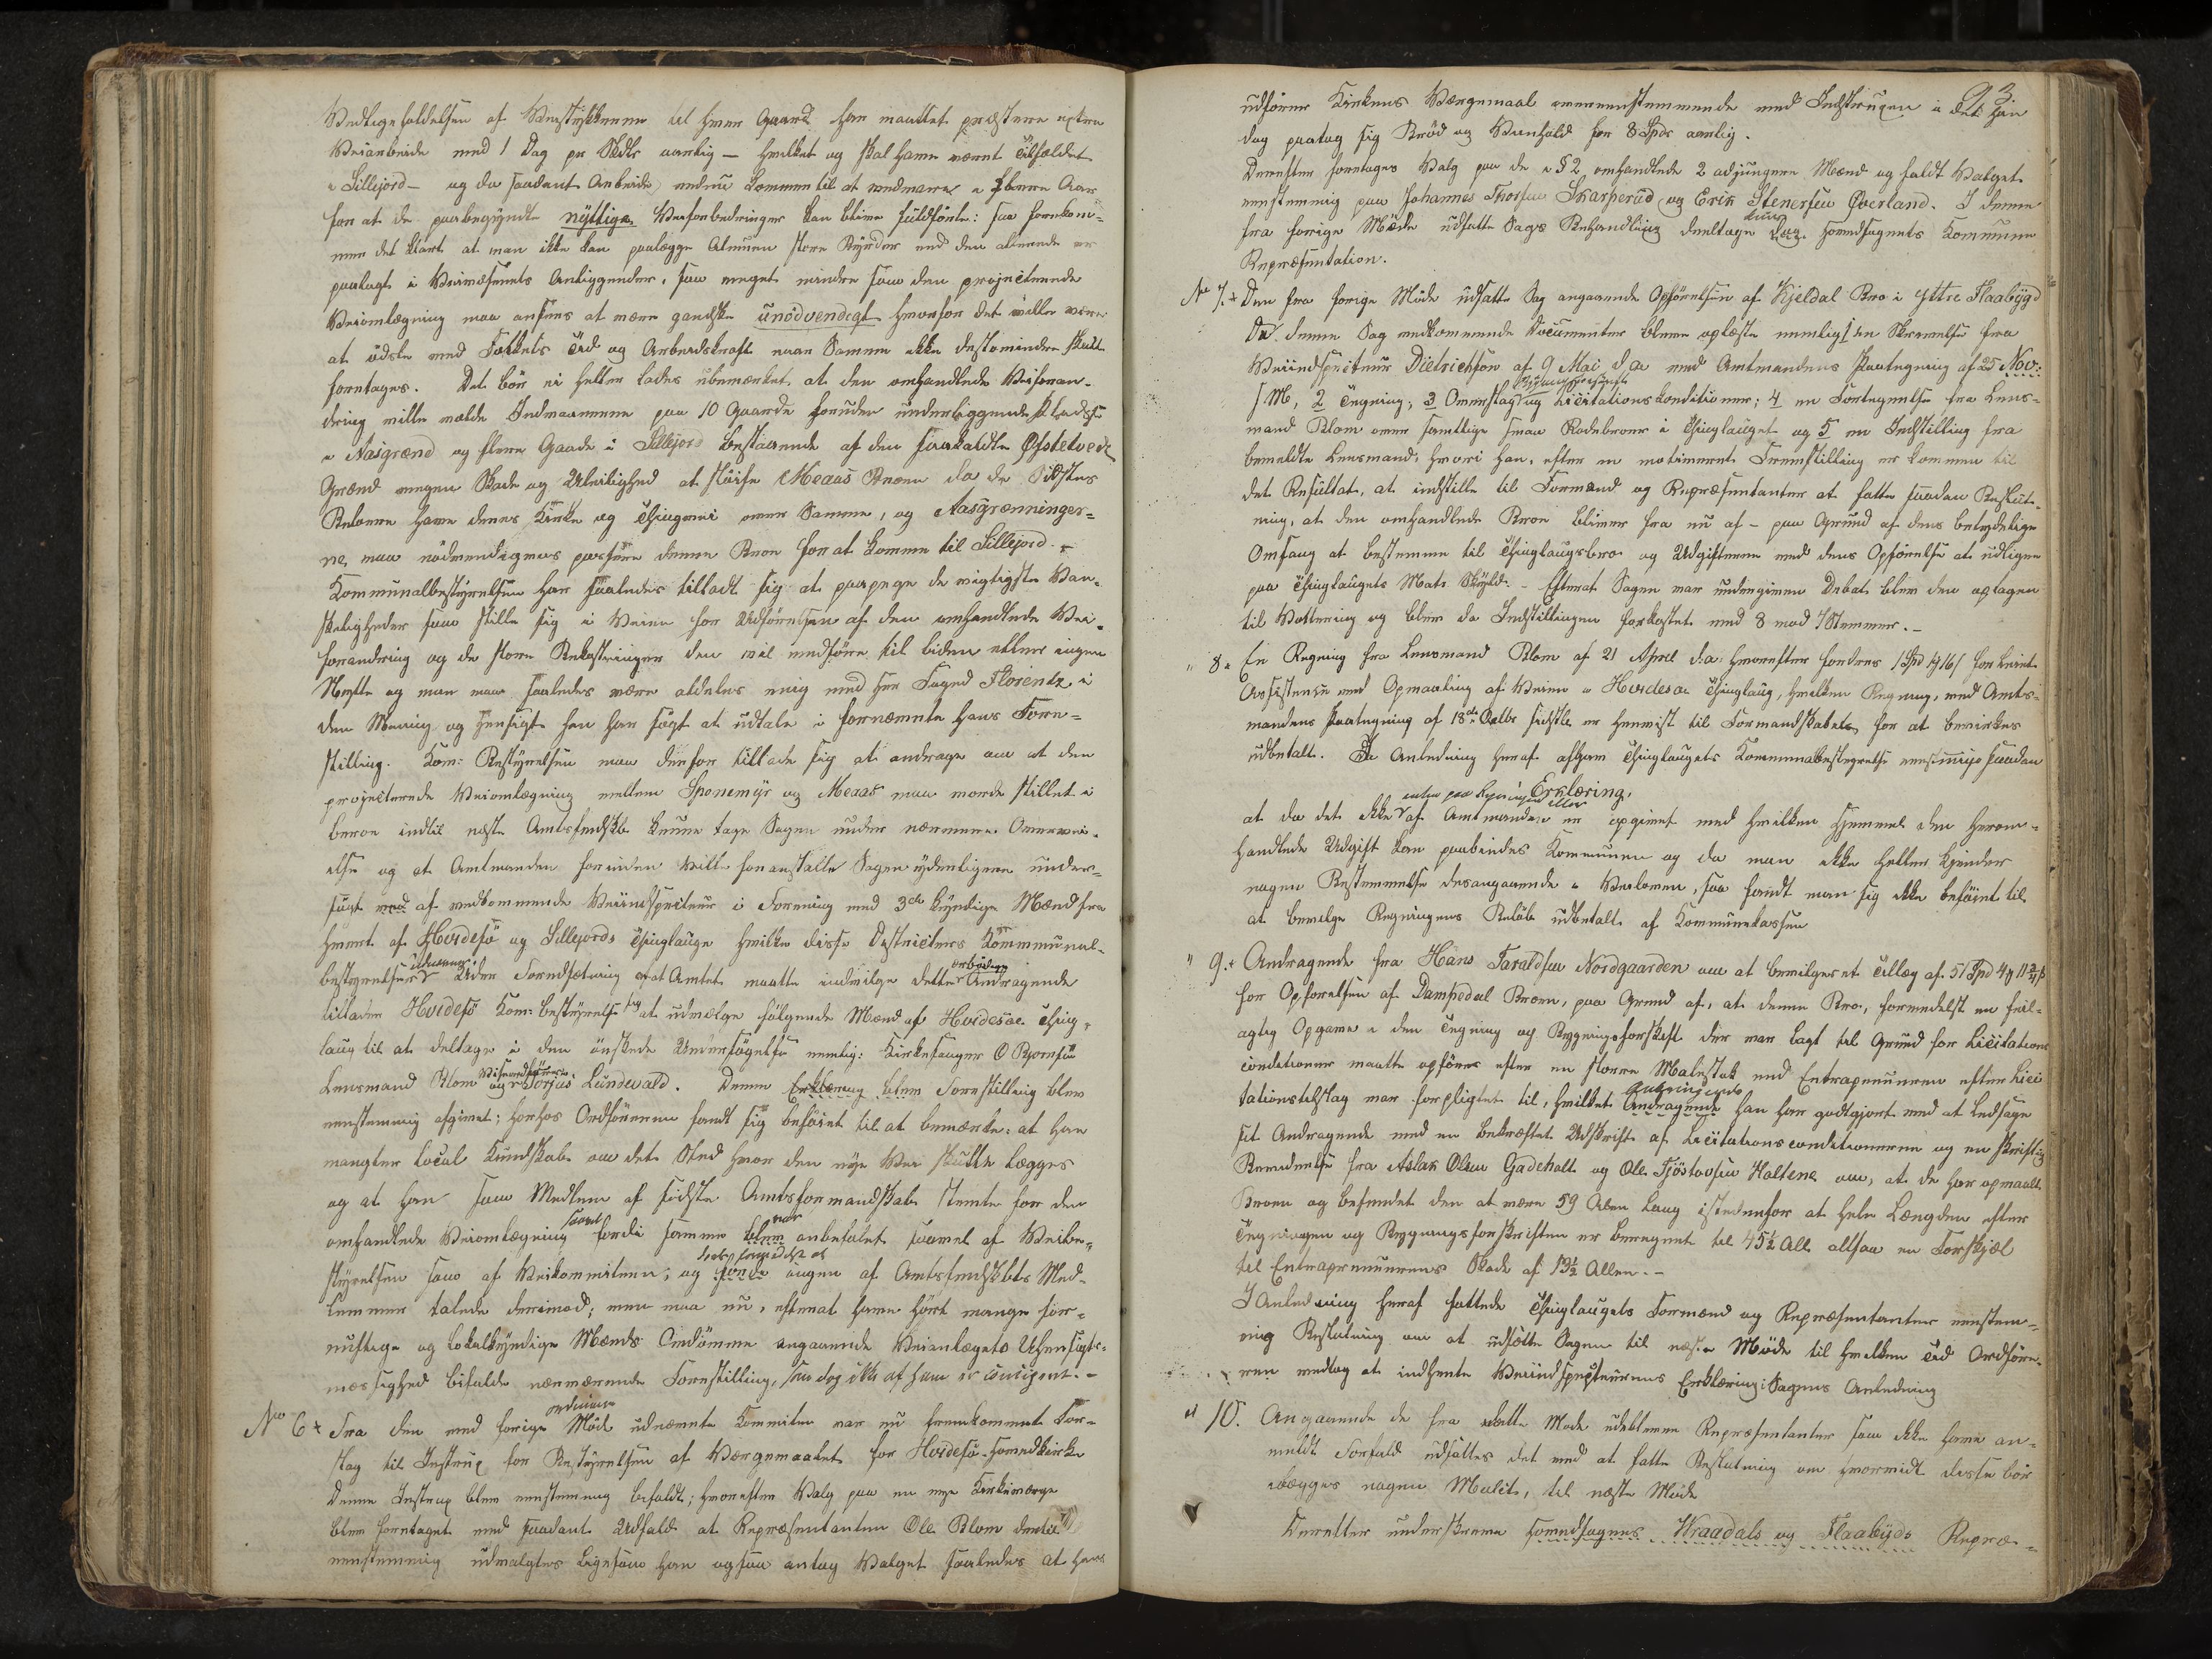 Vedligeholdelsen af Veistykkerne til hver Gaard har maattet præstere extra
Veiarbeide med 1 Dag pr Skdlr aarlig — hvilket og skal have været Tilfældet
i Sillejord — og da saadant Arbeide endnu kommer til at vedvare i flere Aar
for at de paabegyndte nyttige Veiforbedringer kan blive fuldførte: saa forekom-
mer det klart at man ikke kan paalægge Almuen store Byrder end den allerede er
paalagt i Veivæsenets Anliggender, saa meget mindre som den projecterede
Veiomlægning maa ansees at være gandske unødvendigt hvorfor det vilde være
at ødsle med Folkets Tid og Arbeidskraft naar Samme ikke destomindre skulde
foretages. Det bør ei heller lades ubemærket at den omhandlede Veiforan-
dring vilde volde Indvaanerne paa 10 Gaarde foruden underliggende Pladse
i Aasgrænd og flere Gaarde i Sillejord bestaaende af den saakaldte Ofstetvedt
Grænd megen Skade og Uleilighed at sløife Meaas Broen da de Sidstes
Beboere have deres Kirke og Thingvei over Samme, og Aasgrænninger-
ne, maa nødvendigviis passere denne Broe for at komme til Sillejord.
Kommunalbestyrelsen har saaledes tilladt sig at paapege de vigtigste Van-
skeligheder som stille sig i Veien for Udførelsen af den omhandlede Vei-
forandring og de store Bekostninger den vil medføre til liden eller ingen
Nytte og man maa saaledes være aldeles enig med Hr Foged Florentz i
den Mening og Hensigt han har søgt at udtale i fornævnte hans Fore-
stilling. Kom: Bestyrelsen maa derfor tillade sig at andrage om at den
projecterede Veiomlægning mellem Sponemyr og Meaas maa vorde stillet i
beroe indtil næste Amtsfmdskb kunne tage Sagen under nærmere Overvei-
else og at Amtmanden forinden vilde foranstalte Sagen yderligere under-
søgt ved af vedkommende Veiinspecteur i Forening med 3de kyndige Mænd fra
hvert af Hvidesø og Sillejords Thinglauge hvilke disse Districters Kommunal-
bestyrelser udnævner. Under Forudsætning af at Amtet maatte indvilge dette ærbødige Andragende
tillader Hvidesø Kom: bestyrelse sig at udvælge følgende Mænd af Hvidesøe Thing-
laug til at deltage i den ønskede Undersøgelse nemlig: Kirkesanger O Bjørnsen
Lensmand Blom og Torjus Lundevald. Denne Erklæring blev Forestilling blev
eenstemmig afgivet; hvorhos Ordføreren fandt sig beføiet til at bemærke: at han
mangler local Kundskab om det Sted hvor den nye Vei skulde lægges
og at han som Medlem af sidste Amtsformandskab stemte for den
omhandlede Veiomlægning fordi samme blev var anbefalet saavel af Veibe-
styrelsen som af Veikommiteen; og ingen af Amtsfmdskbts Med-
lemmer talede derimod; men maa nu, efterat have hørt mange for-
nuftige og lokalkyndige Mænds Omdømme angaaende Veianlægets Uhensigts-
mæssighed bifalde nærværende Forestilling, som dog ikke af ham er conciperet. —
No 6 Fra den ved forige ordinære Møde udnævnte Kommitee var nu fremkommet For-
slag til Instrux for Bestyrelsen af Værgemaalet for Hvidesø Hovedkirke
Denne Instrux blev eenstemmig bifaldt; hvorefter Valg paa en nye Kirkeværge
blev foretaget med saadant Udfald at Repræsentanten Ole Blom dertil
eenstemmig udvalgtes ligesom han ogsaa antog Valget saaledes at han
93
udfører Kirkens Værgemaal overensstemmende med Instruxen i det han
dog paatog sig Brød og Viinhold for 8 Spdr aarlig.
Derefter foretages Valg paa de i § 2 omhandlede 2 adjungere Mænd og faldt Valget
eenstemmig paa Johannes Thorsen Skarperud og Erik Stenersen Øverland. I denne
fra forige Møde udsatte Sags Behandling deeltage kun Hovedsognets Kommune
Repræsentation.
No 7. Den fra forige Møde udsatte Sag angaaende Opførelsen af Kjeldal Bro i Yttre Flaabygd
Da denne Sag vedkommende Documenter bleve oplæste nemlig 1 en Skrivelse fra
Veiinspecteur Dietrichson af 9 Mai d.a. med Amtmandens Paategning af 25 Nov:
s M, 2 Tegning; 3 Overslag og Licitationskonditioner; 4 en Fortegnelse fra Lens-
mand Blom over samtlige smaa Rodebroer i Thinglauget og 5 en Indstilling fra
bemeldte Lensmand, hvori han, efter en motiveret Fremstilling er kommen til
det Resultat, at indstille til Formænd og Repræsentanter at fatte saadan Beslut-
ning, at den omhandlede Broe bliver fra nu af — paa Grund af dens betydelige
Omfang at bestemme til Thinglaugsbro og Udgifterne med dens Opførelse at udligne
paa Thinglaugets Matr: Skyld. — Efterat Sagen var undergiven Debat blev den optagen
til Vottering og blev da Indstillingen forkastet med 8 mod 7 Stemmer. —
" 8. En Regning fra Lensmand Blom af 21 April d.a. hvorefter fordres 1 Spd 16 s for leiet
Assistence ved Opmaaling af Veiene i Hvidesøe Thinglaug, hvilken Regning, med Amt-
mandens Paategning af 18de Octbr sidstl er henvist til Formandskabet, for at bevirkes
udbetalt. I Anledning heraf afgav Thinglaugets Kommunalbestyrelse eenstemmige saadan
Erklæring.
at da det ikke enten paa Regningen eller af Amtmanden er opgivet med hvilken Hjemmel den herom-
handlede Udgift kan paabindes Kommunen og da man ikke heller kjender
nogen Bestemmelse desangaaende i Veiloven, saa fandt man sig ikke beføiet til
at bevilge Regningens Beløb udbetalt af Kommunekassen
" 9. Andragende fra Hans Taraldsen Nordgaarden om at bevilges et Tillæg af 51 Spd
for Opførelsen af Dampedal Broen, paa Grund af, at denne Bro, formedelst en feil-
agtig Opgave i den Tegning og Bygningsforskrift der var lagt til Grund for Licitations
conditioner maatte opføres efter en større Malestok end Entrepreneuren efter Lici
tationstilslag var forpligtet til, hvilket Andragende Anbringende han har godtgjort ved at ledsage
sit Andragende med en bekræftet Udskrift af Licitationsconditionerne og en skriftlig
Beendelse fra Aslak Olsen Gadehalt og Ole Tjøstovsen Haltene om, at de har opmaalt
Broen og befundet den at være 59 Alen lang istedenfor at hele Længden efter
Tegningen og Bygningsforskriften er beregnet til 45½ All altsaa en Forskjæl
til Entrepreneurens Skade af 13½ Allen. —
I Anledning heraf fattede Thinglaugets Formænd og Repræsentanter eenstem-
mig Beslutning om at udsætte Sagen til næste Møde til hvilken Tid Ordføre-
ren vedtog at indhente Veiinspecteurens Erklæring i Sagens Anledning
" 10. Angaaende de fra dette Møde udeblevne Repræsentanter som ikke have an-
meldt Forfald udsættes det med at fatte Beslutning om hvorvidt disse bør
ilægges nogen Mulct, til næste Møde
Derefter underskreve Hovedsognes Vraadals og Flaabyds Repræ-